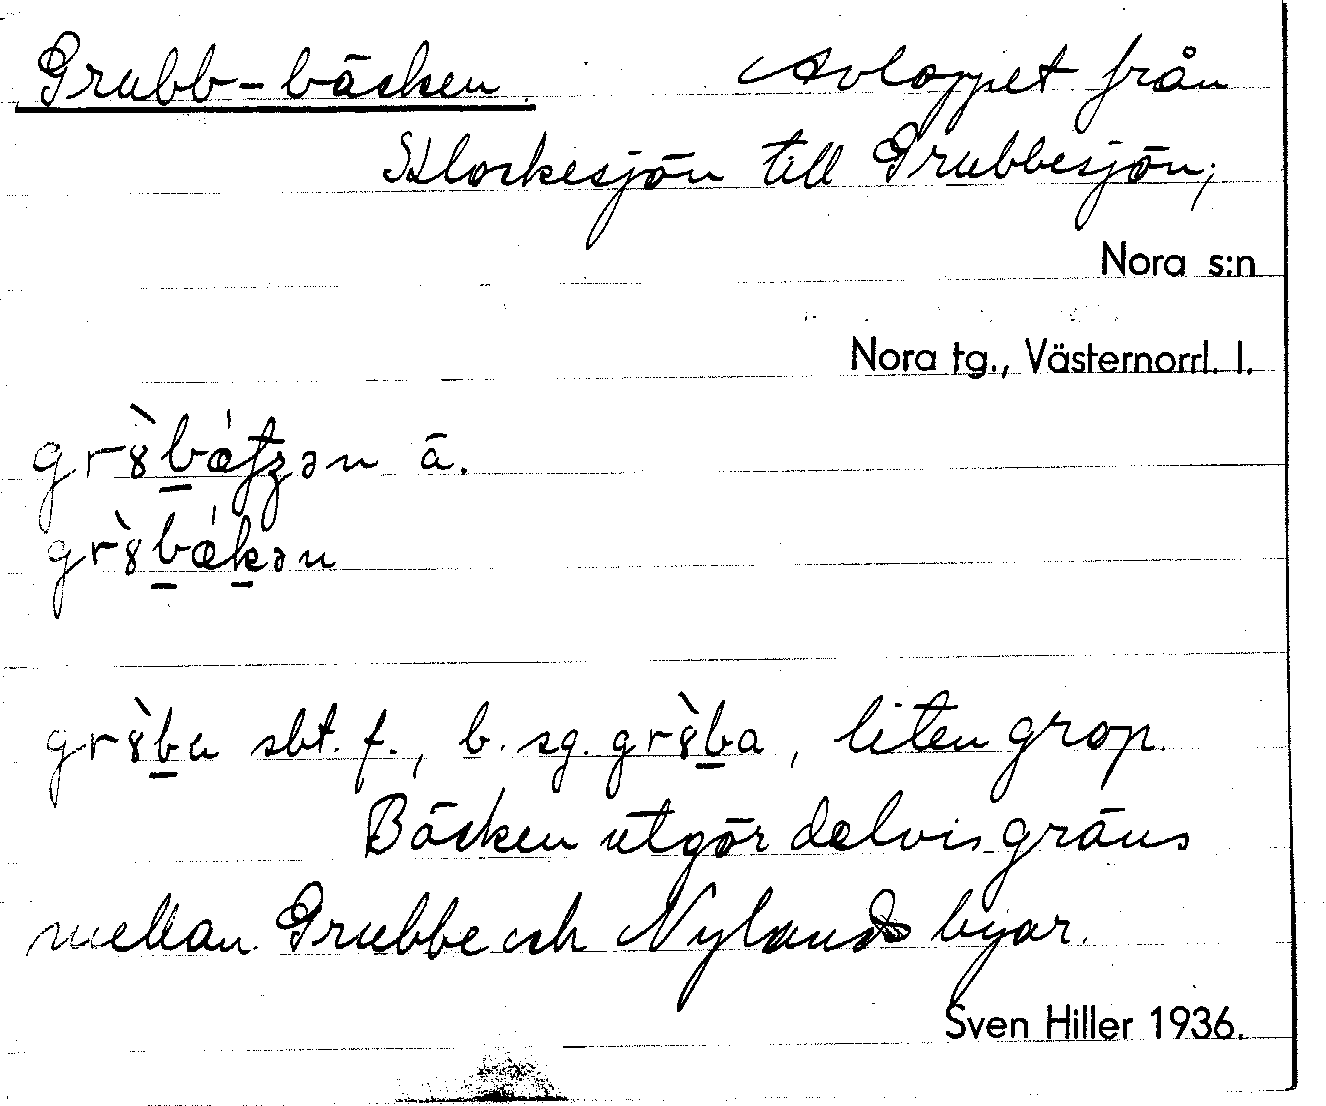 Grubb-bäcken. Avloppet från
Klockesjön till Grubbesjön;
Nora s:n
Nora tg., Västernorrl. l.
gr8̀bǽtʒən ä.
gr8̀bǽkən
gr8̀ba sbt. f., b. sg. gr8̀ba, liten grop.
Bäcken utgör delvis gräns
mellan Grubbe och Nylands byar.
Sven Hiller 1936.